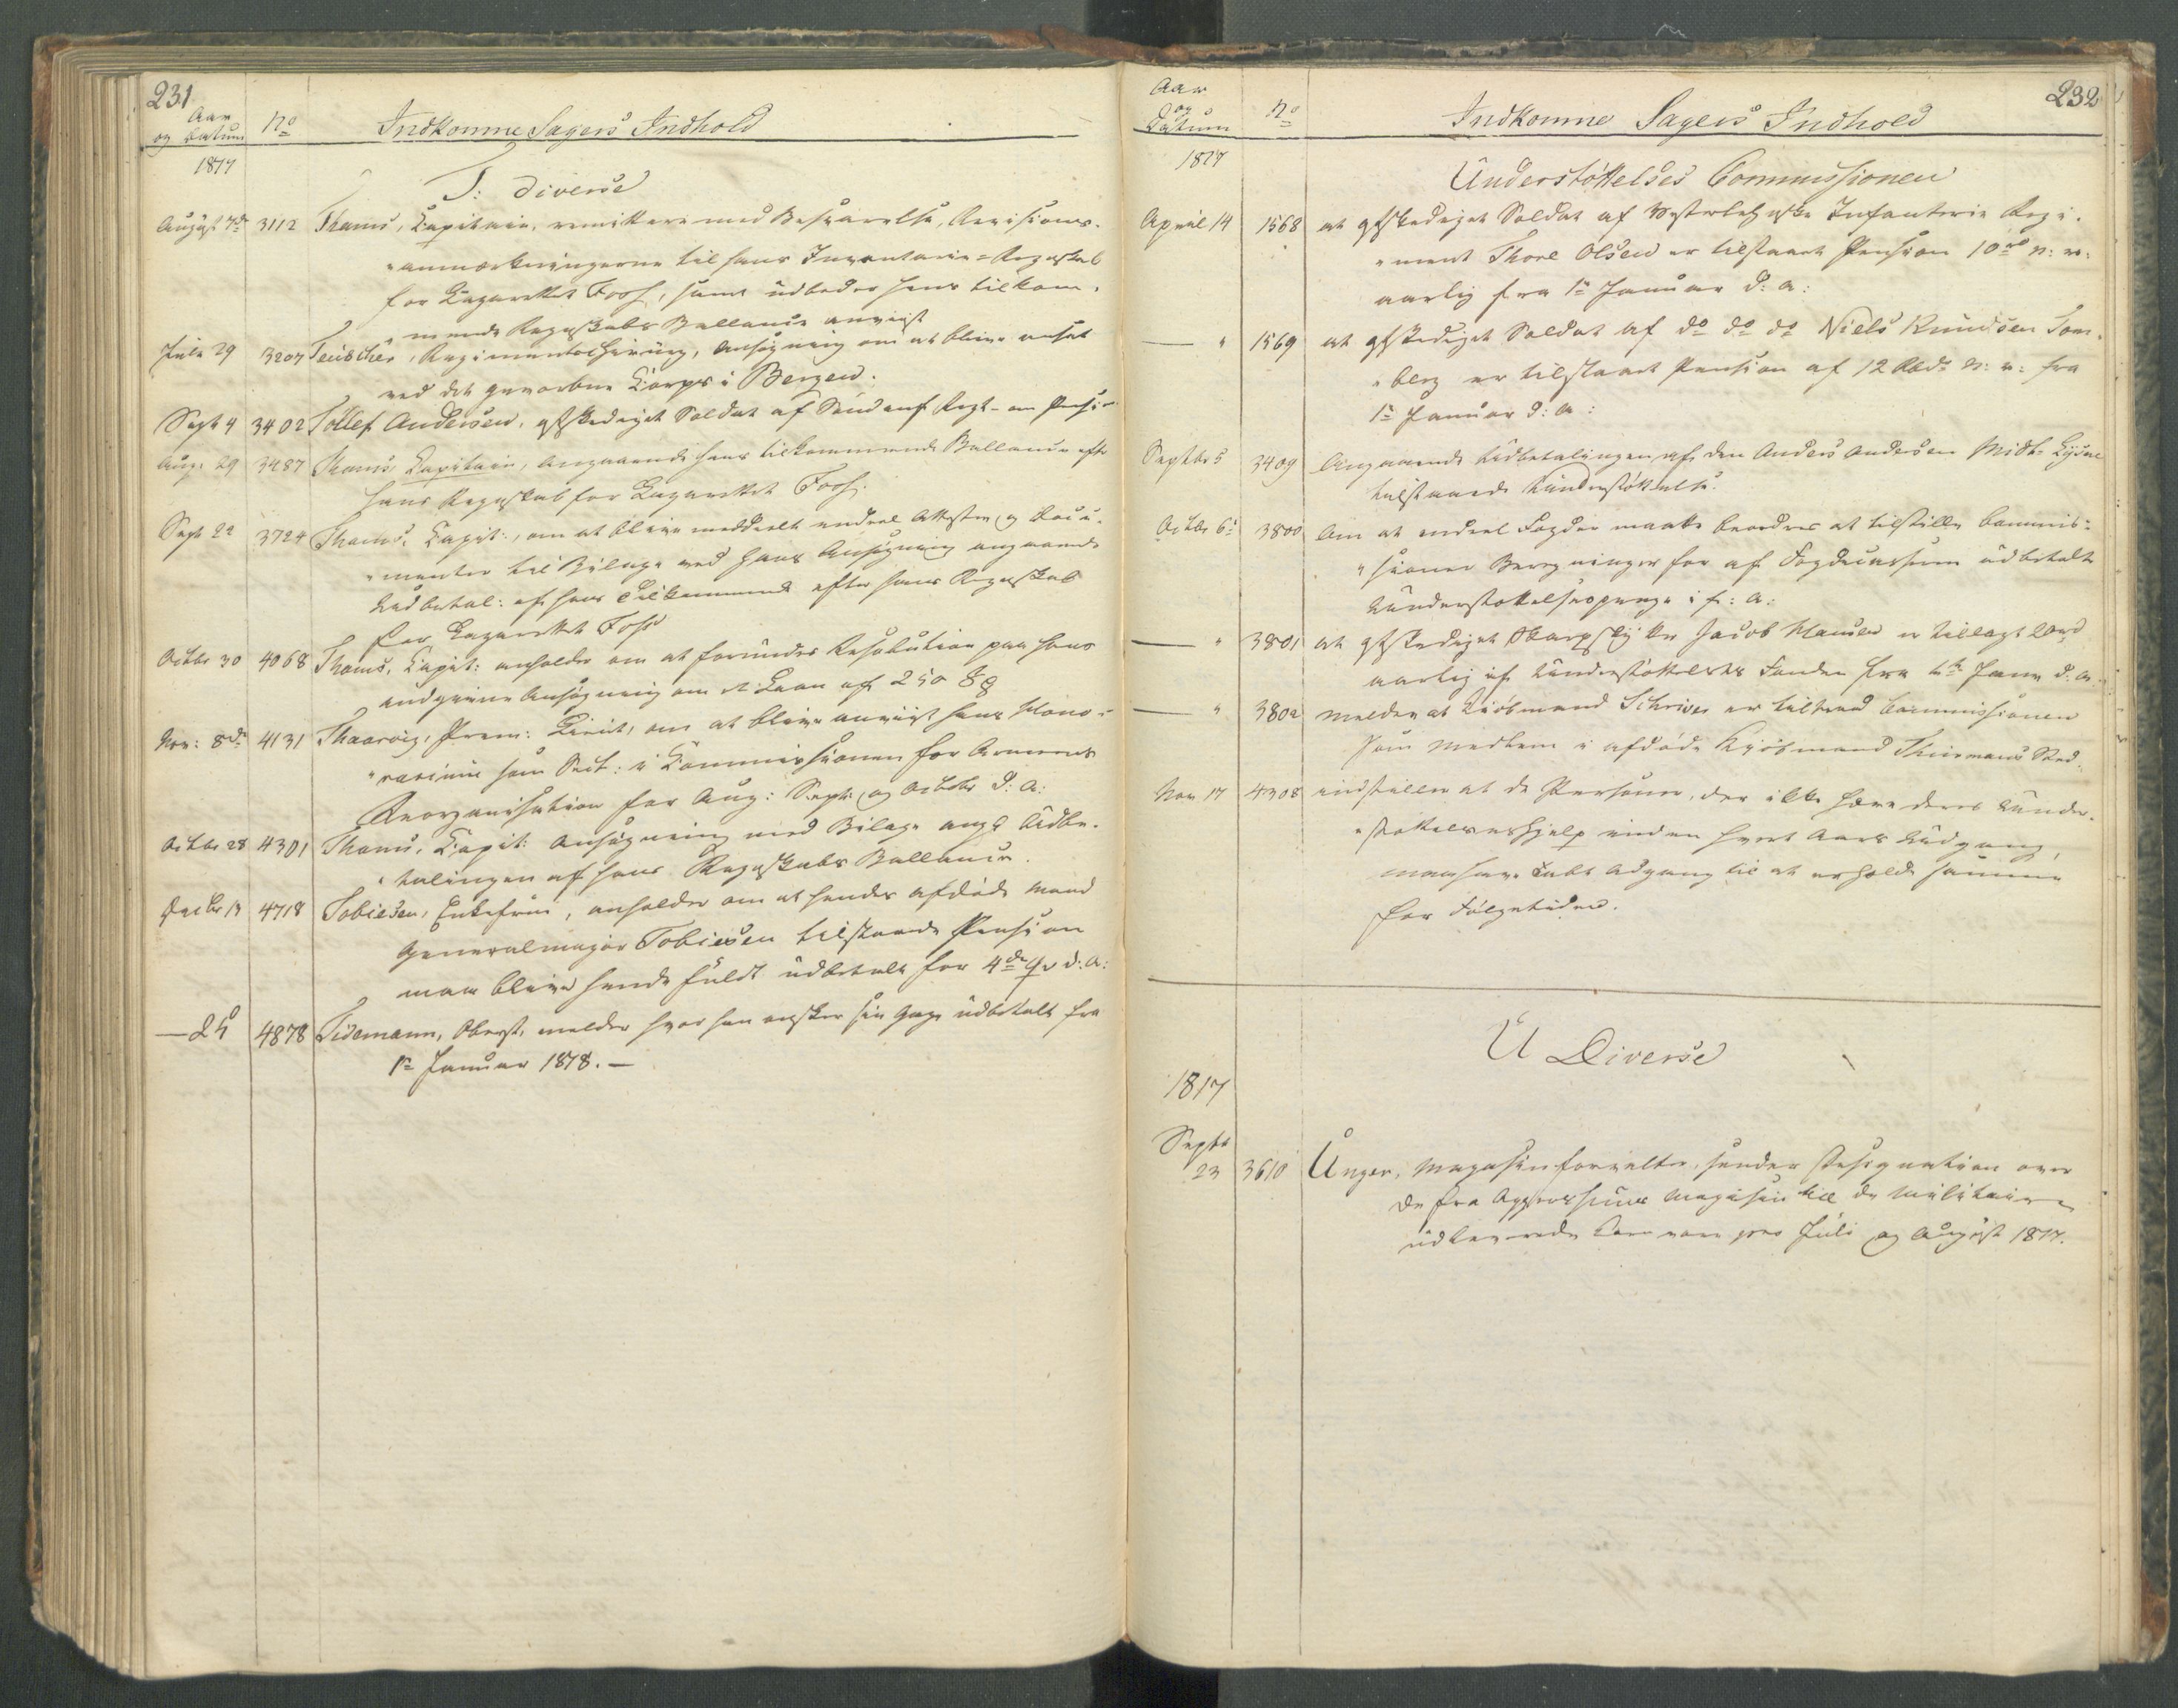 231
Aar og Datum No Indkomne Sagers Indhold
1817
T: Diverse
August 7de 3112 Thams, Capitain, remitterer med Besvarelse, Revisions-
"anmærkningerne til hans Inventarie-Regnskab
for Lazarettet Foss, samt udbeder hans tilkom-
"mende Regnskabs Ballance anviist
Julii 29 3207 Teuscher, Regimentschirurg, Ansøgning om at blive ansat
ved det gevorbne Corps i Bergen.
Sept 4 3402 Tollef Andersen, afskediget Soldat af Regt. om Pension
Aug: 29 3487 Thams Capitain, angaaende hans tilkommende Ballance efter
hans Regnskab for Lazarettet Foss.
Sept 22 3724 Thams, Capit:, om at blive meddeelt endeel Attester og Docu-
"menter til Bilage ved hans Ansøgning angaaende
Udbetal: af hans Tilkommende efter hans Regnskab
for Lazarettet Foss
Octbr 30 4068 Thams, Capit: anholder om at forundes Resolution paa hans
indgivne Ansøgning om et Laan af 250
Nov: 8de 4131 Thaarvig, Prem: Lieut, om at blive anviist hans Hono-
"rarium som Sect: i Commissionen for Armeens
Reorganisation for Aug: Sept: og Octobr d: A:
Octbr 28 4301 Thams, Capit: Ansøgning med Bilage angl. Udbe-
"talingen af hans Regnskabs Ballance.
Decbr 13 4718 Tobiesen, Enkefrue, anholder om at hendes afdøde Mand
Generalmajor Tobiesen tilstaaede Pension
maa blive hende fuldt udbetalt for 4de Qv d: A:
— 24 4878 Tidemann, Oberst, melder hvor han ønsker sin Gage udbetalt fra
1e Januar 1818. —
232
Aar og Datum No Indkomne Sagers Indhold
1817
Understøttelses Commissionen
April 14 1568 at afskediget Soldat af Infanterie Regi-
"ment Thore Olsen er tilstaaet Pension 10 n: v:
aarlig fra 1e Januar d: A:
— " 1569 at afskediget Soldat af do do do Niels Knudsen Tom-
"berg er tilstaaet Pension af 12 Rbd. n: v: fra
1e Januar d: A:
Septbr 5 3409 Angaaende Udbetalingen af den Anders Andersen
tilstaaede Understøttelse.
Octbr 6 3800 Om at endeel Fogder maatte beordres at tilstille Commis-
"sionen Beregninger for af Fogdecassen udbetalte
Understøttelsespenge i f: A:
— " 3801 at afskediget Skarpskytter Jacob Hansen er tillagt
aarlig af Understøttelses Fonden fra 1te Janr d: A:
— " 3802 melder at Kiøbmand Schriver er tiltraadt Commissionen
som Medlem i afdøde Kjøbmand Thurmans Sted.
Nov 17 4308 indstiller at de Personer, der ikke have deres Under-
"støttelseshjelp inden hvert Aars Udgang,
maa have tabt Adgang til at erholde samme
for Følgetiden.
U Diverse
1817
Septr
23 3610 Unger, Magasinforvalter, sender Designation over
de fra Aggershuus Magasin til de Militaire
udleverede pro Juli og August 1817.